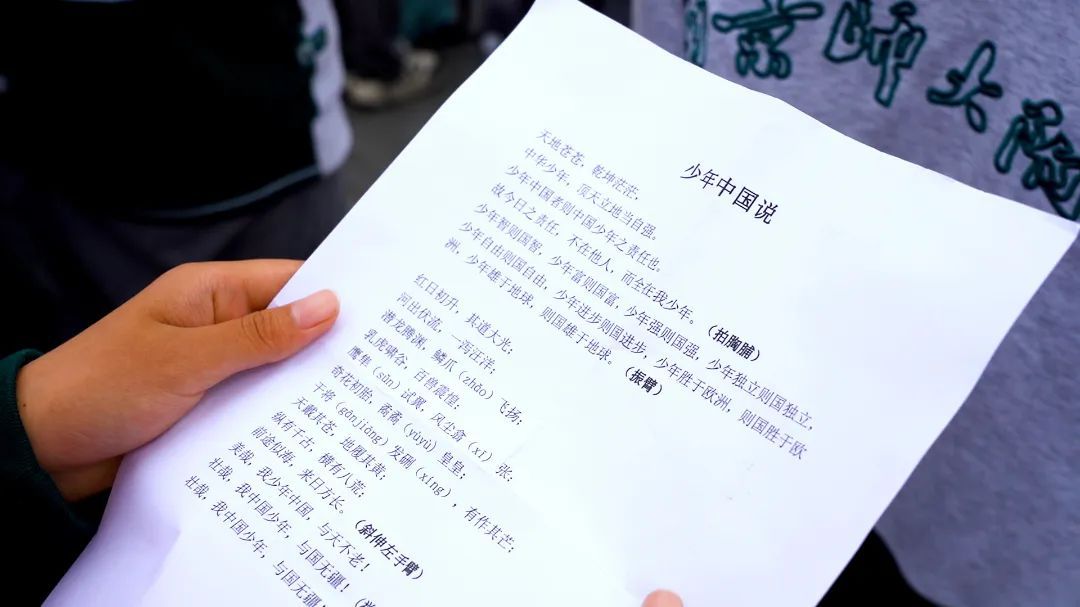 京师大附
少年中国说
天地苍苍，乾坤茫茫，
中华少年，顶天立地当自强。
少年中国者则中国少年之责任也。
故今日之责任，不在他人，而全在我少年。（拍胸脯）
少年智则国智，少年富则国富，少年强则国强，少年独立则国独立，
少年自由则国自由，少年进步则国进步，少年胜于欧洲，则国胜于欧
洲，少年雄于地球，则国雄于地球。（振臂）
红日初升，其道大光；
河出伏流，一泻汪洋；
潜龙腾渊，鳞爪（zhǎo）飞扬；
乳虎啸谷，百兽震惶；
鹰隼（sǔn）试翼，风尘翕（xī）张；
奇花初胎，矞矞（yùyù）皇皇；
干将（gānjiāng）发硎（xíng），有作其芒；
天戴其苍，地履其黄；
纵有千古，横有八荒；
前途似海，来日方长。（斜伸左手臂）
美哉，我少年中国，与天不老！
壮哉，我中国少年，与国无疆！
壮哉，我中国少年，与国无疆，